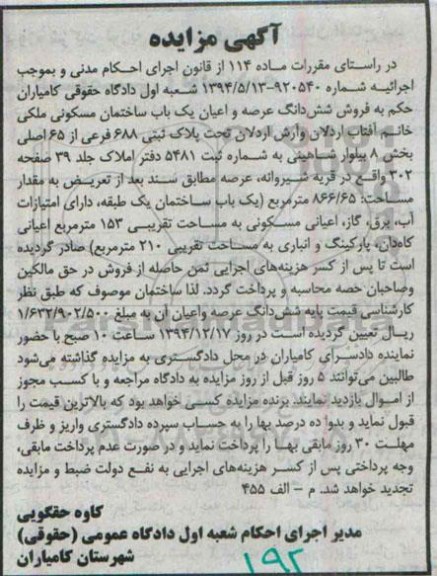 آگهی مزایده
در راستای مقررات ماده ۱۱۴ از قانون اجرای احکام مدنی و بموجب
اجرائیه شماره ۹۲۰۵۴۰-۱۳۹۴/۵/۱۳ شعبه اول دادگاه حقوقی کامیاران
حکم به فروش شش‌دانگ عرصه و اعیان یک باب ساختمان مسکونی ملکی
خانم آفتاب اردلان وارش اردلان تحت پلاک ثبتی ۶۸۸ فرعی از ۶۵ اصلی
بخش ۸ بیلوار شاهینی به شماره ثبت ۵۴۸۱ دفتر املاک جلد ۳۹ صفحه
۳۰۲ واقع در قریه شیروانه، عرصه مطابق سند بعد از تعریض به مقدار
مساحت: ۸۶۶/۶۵ مترمربع (یک باب ساختمان یک طبقه، دارای امتیازات
آب، برق، گاز، اعیانی مسکونی به مساحت تقریبی ۱۵۳ مترمربع اعیانی
کاه‌دان، پارکینگ و انباری به مساحت تقریبی ۲۱۰ مترمربع) صادر گردیده
است تا پس از کسر هزینه‌های اجرایی ثمن حاصله از فروش در حق مالکین
وصاحبان حصه محاسبه و پرداخت گردد. لذا ساختمان موصوف که طبق نظر
کارشناسی قیمت پایه شش‌دانگ عرصه واعیان آن به مبلغ ۱/۶۳۲/۹۰۲/۵۰۰
ریال تعیین گردیده است در روز ۱۳۹۴/۱۲/۱۷ ساعت ۱۰ صبح با حضور
نماینده دادسرای کامیاران در محل دادگستری به مزایده گذاشته می‌شود
طالبین می‌توانند ۵ روز قبل از روز مزایده به دادگاه مراجعه و با کسب مجوز
از اموال بازدید نمایند. برنده مزایده کسی خواهد بود که بالاترین قیمت را
قبول نماید و بدواً ده درصد بها را به حساب سپرده دادگستری واریز و ظرف
مهلت ۳۰ روز مابقی بها را پرداخت نماید و در صورت عدم پرداخت مابقی،
وجه پرداختی پس از کسر هزینه‌های اجرایی به نفع دولت ضبط و مزایده
تجدید خواهد شد. م – الف ۴۵۵
کاوه حقگویی
مدیر اجرای احکام شعبه اول دادگاه عمومی (حقوقی)
شهرستان کامیاران
۱۹۲